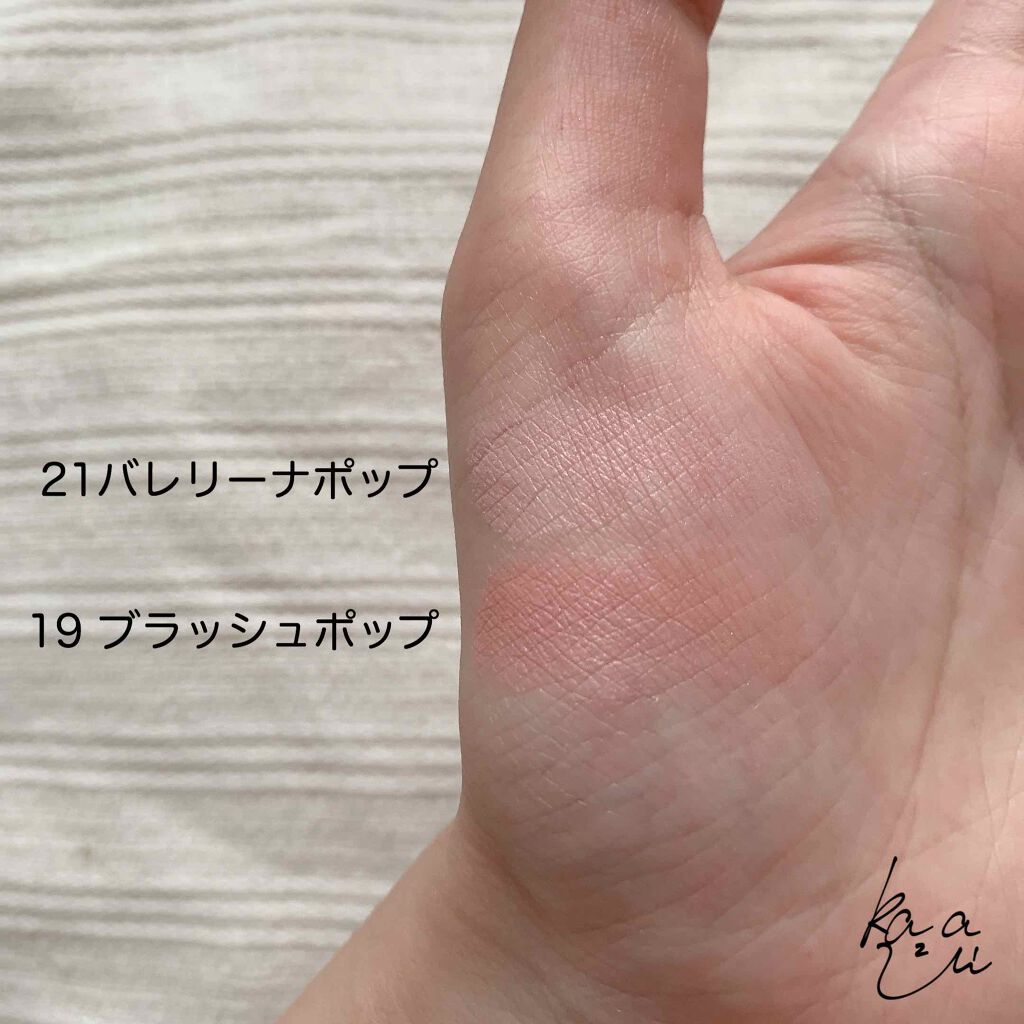 21バレリーナポップ
19 ブラッシュポップ